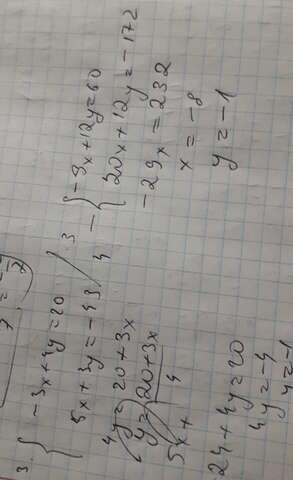 3. { -3x+4y=20 / 3
5x+3y=-43 / 4
- { -9x+12y=60
20x+12y=-172
-29x=232
x=-8
y=-1
4y=20+3x
y=20+3x
4
5x+
24+4y=20
4y=-4
y=-1